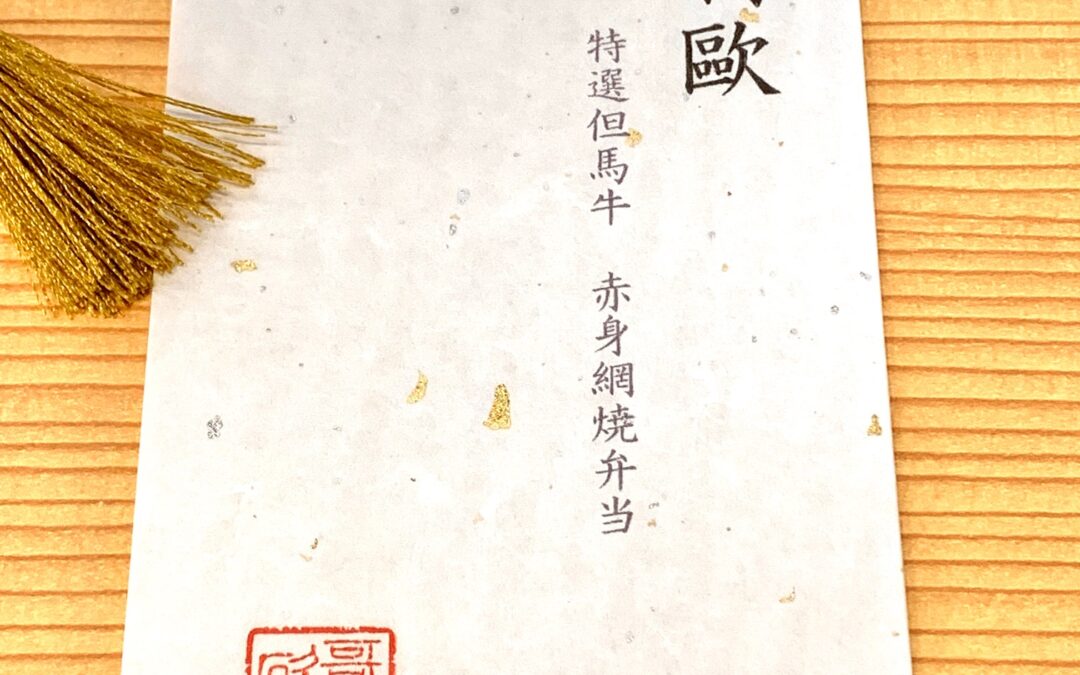 歐
特選但馬牛 赤身網焼弁当
哥